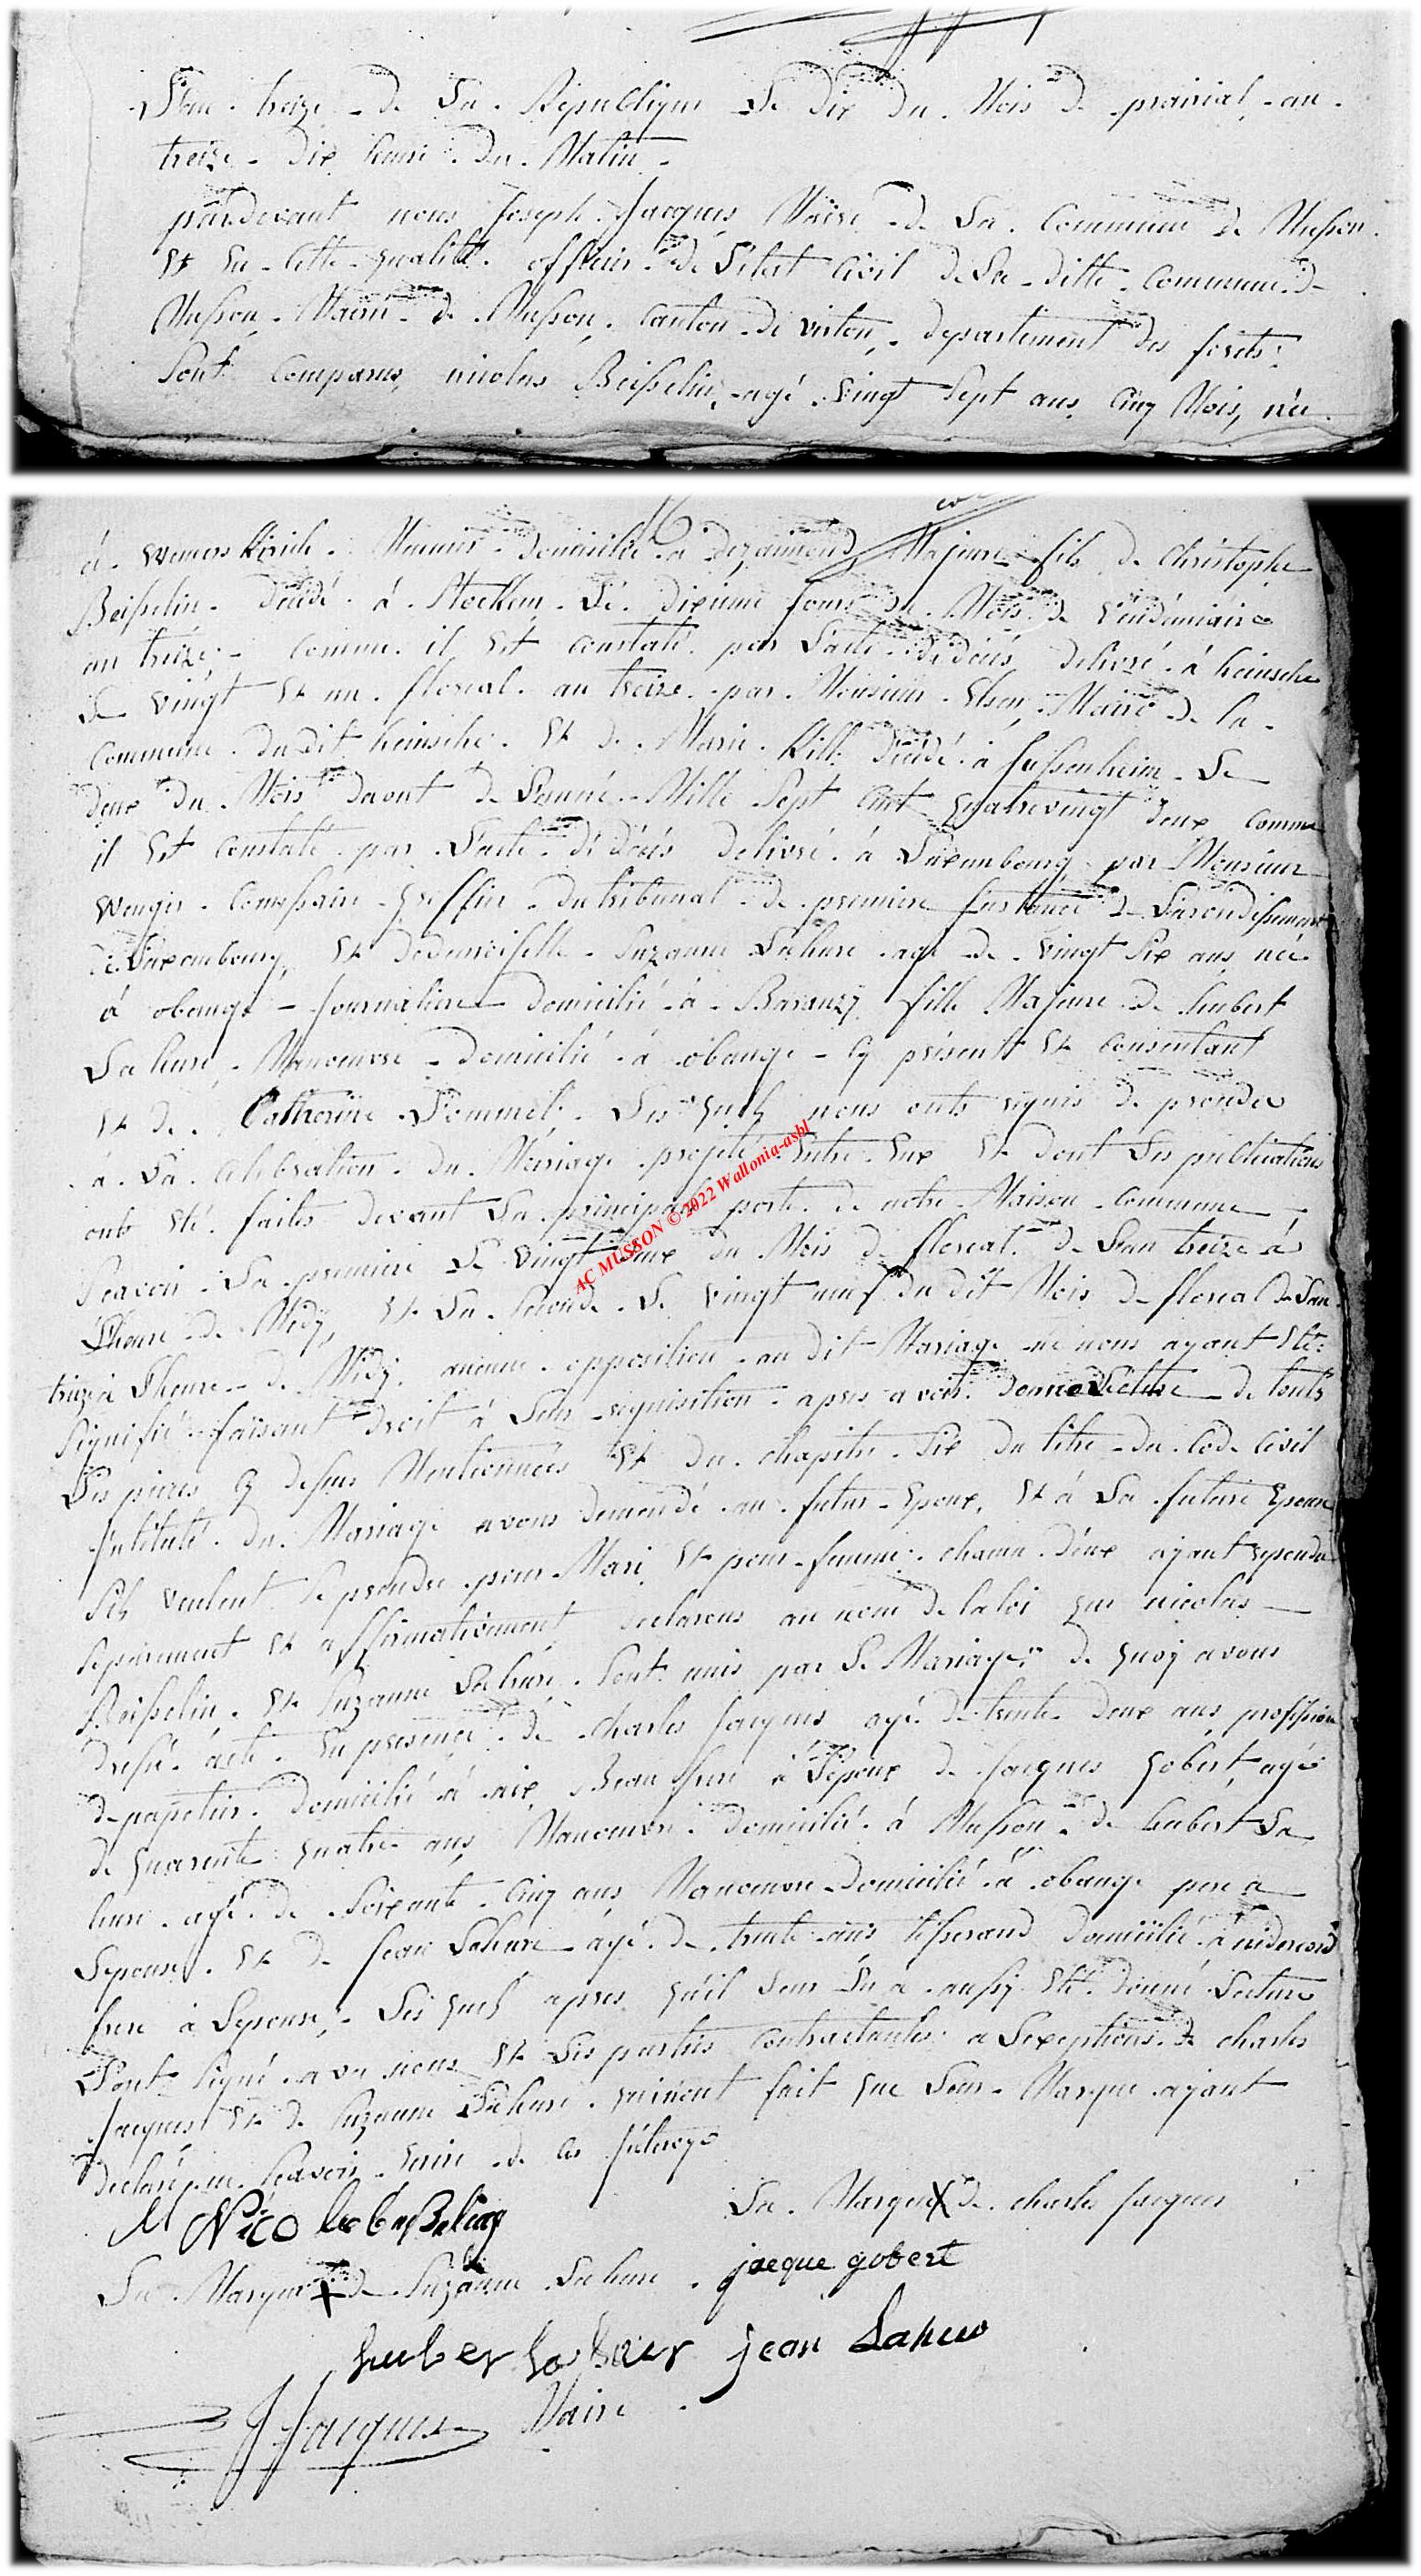 L'an treize de La Republique Le dix du Mois de prairial an
treize dix heure du Matin
pardevant nous joseph jacques Maire de La Commune de Musson
Et En Cette qualité officier de L'etat Civil de La ditte Commune de
Musson Mairie de Musson Canton de virton departement des forets
Sont Comparus nicolas Beisselin agé vingt Sept ans Cinq Mois, née
à domicilié à Majeure fils de Christophe
Beisselin décédé à Stockem Le dixieme jour du Mois de Vendémiaire
an treize Comme il Est Constaté par L'acte de décés delivré à heinsche
Le vingt Et un floreal an treize par Monsieur Maire de la
Commune du dit heinsche Et de Marie décédé à Le
deux du Mois daout de L'année Mille Sept Cent quatrevingt deux Comme
il Est Constaté par L'acte de décés delivré à Luxembourg par Monsieur
greffier du tribunal de premiere jnstance de L'arondissement
de Luxembourg, Et dedemoiselle Suzanne Lahure age de vingt Six ans née
à obange journaliere domicilié à Baranzy fille Majeure de hubert
Lahure, Manoeuvre domicilié à obange Cy présent Et Consentant
Et de Catherine Lommel Les quels nous onts requis de proceder
a La Celebration du Mariage projeté Entre Eux Et dont Les publications
onts Eté faites devant La principale porte de notre Maison Commune
Scavoir La premiere Le vingt deux du Mois de floreal de L'an treize à
L'heure de Midy, Et La Seconde Le vingt neuf du dit Mois de floreal de L'an
treize à L'heure de Midy aucune opposition au dit Mariage ne nous ayant Eté
Signifié faisant droit à Leur requisition apres avoir donné Lecture de touts
Les pieces Cy dessus Mentionnées Et du chapitre Six du titre du Code Civil
jntitulé du Mariage avons demendé au futur Epoux, Et à La future Epouse
Sils veulent Se prendre pour Mari Et pour femme chacun d'eux ayant repondu
Seperement Et affirmativement declarons au nom de la loi que nicolas
Beisselin Et Suzanne Lahure Sont unis par Le Mariage de quoy avons
dressé acte En presence de charles jacques agé de trente deux ans profession
de papetier domicilié à aix Beau frere à L'epoux de jacques gobert agé
de quarente quatre ans Manoeuvre domicilié à Musson de hubert La
hure agé de Soixante Cinq ans Manoeuvre domicilié à obange pere a
Lepouse Et de jean Lahure agé de trente ans tisserand domicilié à
frere à Lepouse, Les quels apres qu'il Leur En a aussy Eté donné Lecture
Sont Signé avec nous Et Les parties Contractantes a Lexeptions de charles
jacques Et de Suzanne Lahure qui n'ont fait que Leur Marque ayant
declaré ne Scavoir Ecrire de Ce jnterogé
La Marque X de charles jacques
La Marque + de Suzanne Lahure jacque gobert
hubert laheur jean Lahur
JJacques Maire
AC MUSSON © 2022 Wallonia-asbl